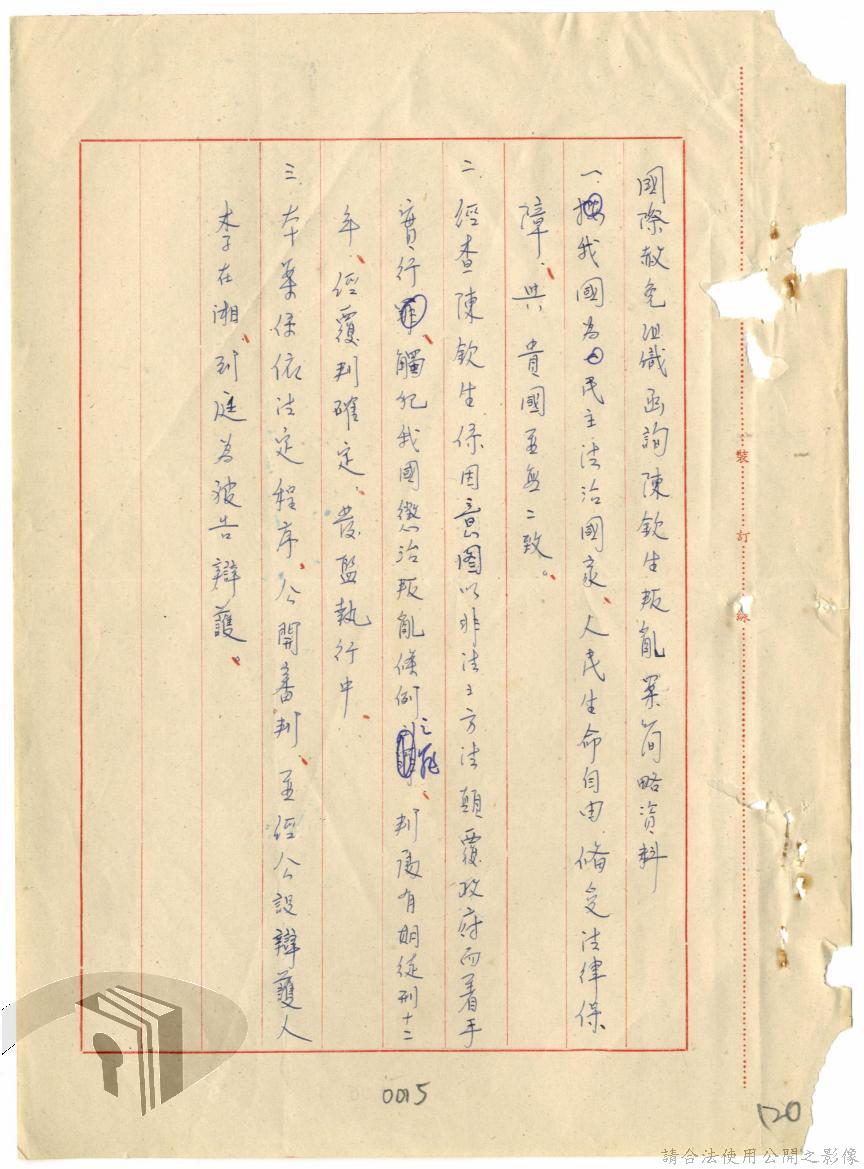 國際赦免組織函詢陳欽生叛亂案簡略資料
一、我國為民主法治國家、人民生命自由、俻受法律保
障、與貴國並無二致。
二、經查陳欽生係因意圖以非法之方法顛覆政府而著手
實行、觸犯我國懲治叛亂條例之罪、判處有期徒刑十二
年、經覆判確定、發監執行中、
三、本案係依法定程序、公開審判、並經公設辯護人
李在湘到庭為被告辯護。
裝
訂
線
0015
120
請合法使用公開之影像